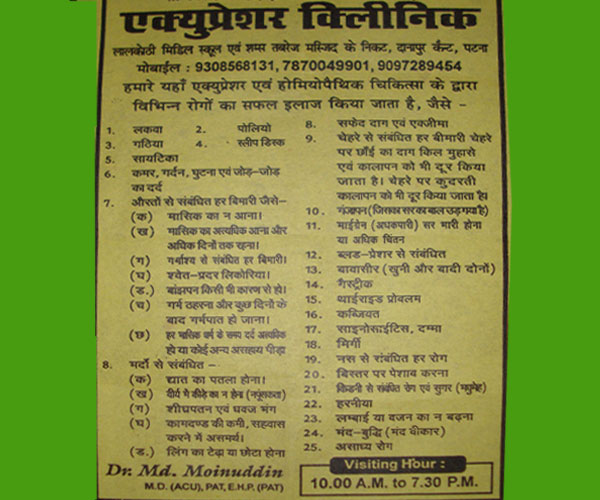 एक्युप्रेशर क्लिनीक
लालकोठी मिडिल स्कूल एवं शम्स तबरेज मस्जिद के निकट, दानापुर कैन्ट, पटना
मोबाईल : 9308568131, 7870049901, 9097289454
हमारे यहाँ एक्युप्रेशर एवं होमियोपैथिक चिकित्सा के द्वारा
विभिन्न रोगों का सफल इलाज किया जाता है, जैसे -
1. लकवा 2. पोलियो
3. गठिया 4. स्लीप डिस्क
5. सायटिका
6. कमर, गर्दन, घुटना एवं जोड़-जोड़
का दर्द
7. औरतों से संबंधित हर बिमारी जैसे-
(क) मासिक का न आना।
(ख) मासिक का अत्यधिक आना और
अधिक दिनों तक रहना।
(ग) गर्भाश्य से संबंधित हर बिमारी।
(घ) श्वेत-प्रदर लिकोरिया।
(ड.) बांझपन किसी भी कारण से हो।
(च) गर्भ ठहरना और कुछ दिनों के
बाद गर्भपात हो जाना।
(छ) हर मासिक धर्म के समय दर्द अत्यधिक
हो या कोई अन्य असहाय्य पीड़ा
8. मर्दो से संबंधित –
(क) द्यात का पतला होना।
(ख) वीर्य में कीड़े का न होना (नपूंसकता)
(ग) शीघ्रपतन एवं ध्वज भंग
(घ) कामदण्ड की कमी, सहवास
करने में असमर्थ।
(ड.) लिंग का टेढ़ा या छोटा होना
Dr. Md. Moinuddin
M.D. (ACU), PAT, E.H.P. (PAT)
8. सफेद दाग एवं एक्जीमा
9. चेहरे से संबंधित हर बीमारी चेहरे
पर छाँई का दाग किल मुहासे
एवं कालापन को भी दूर किया
जाता है। चेहरे पर कुदरती
कालापन को भी दूर किया जाता है।
10. गंजापन (जिसका सरका बाल उड़ गया है)
11. माईग्रेन (अधकपारी) सर भारी होना
या अधिक चिंतन
12. ब्लड-प्रेशर से संबंधित
13. बावासीर (खुनी और बादी दोनों)
14. गैस्ट्रीक
15. थाईराइड प्रोबलम
16. कब्जियत
17. साइनोसाईटिस, दम्मा
18. मिर्गी
19. नस से संबंधित हर रोग
20. बिस्तर पर पेशाब करना
21. किडनी से संबंधित रोग एवं सुगर (मधुमेह)
22. हरनीया
23. लम्बाई या वजन का न बढ़ना
24. मंद-बुद्धि (मंद वीकार)
25. असाध्य रोग
Visiting Hour :
10.00 A.M. to 7.30 P.M.